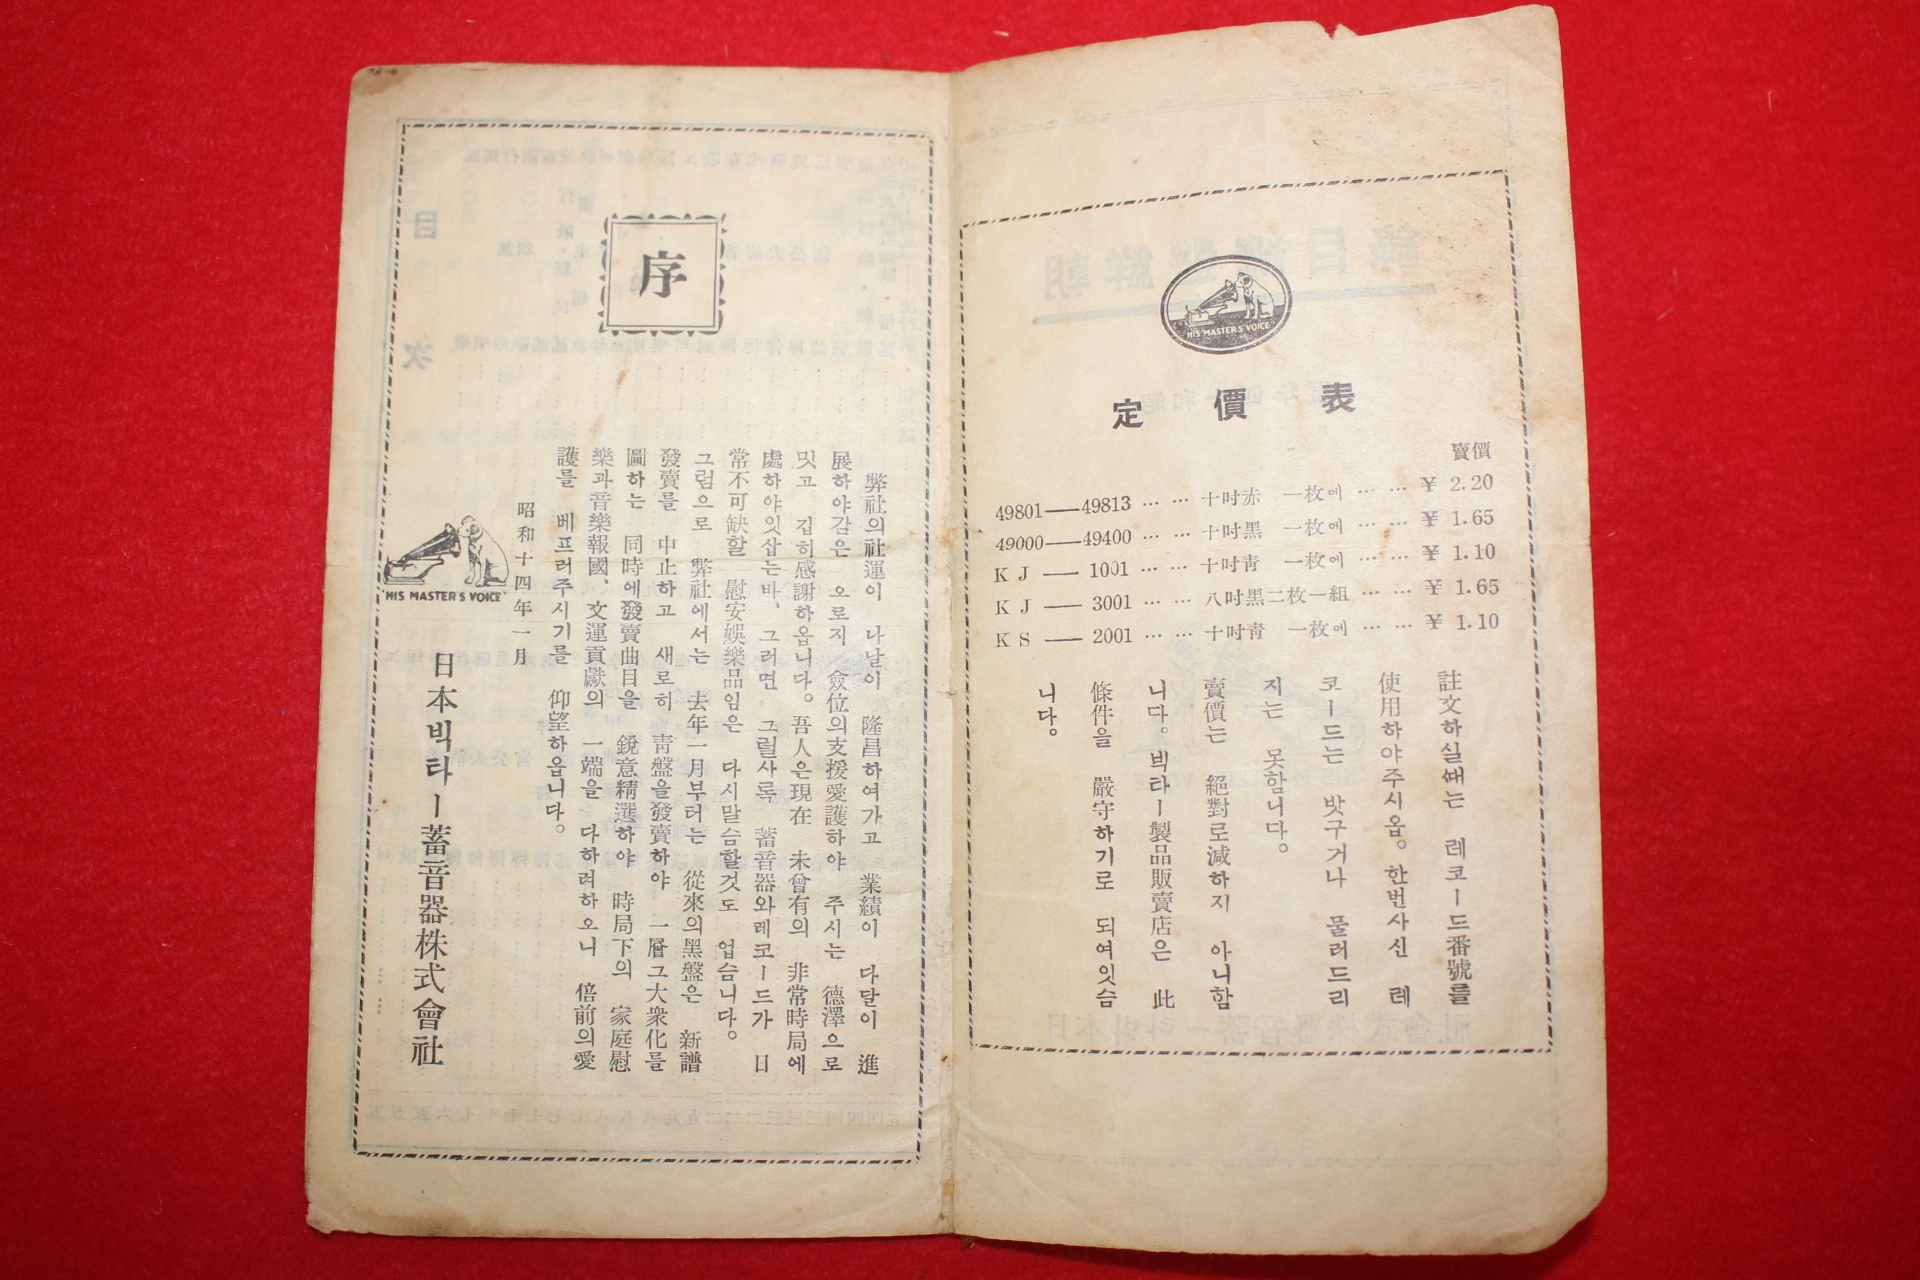 HIS MASTER'S VOICE
定價表
賣價
49801——49813 … … 十吋赤 一枚에 … … ¥ 2.20
49000——49400 … … 十吋黑 一枚에 … … ¥ 1.65
K J —— 1001 … … 十吋靑 一枚에 … … ¥ 1.10
K J —— 3001 … … 八吋黑二枚一組 … … ¥ 1.65
K S —— 2001 … … 十吋靑 一枚에 … … ¥ 1.10
註文하실쌔는 레코ー드番號를
使用하야주시옵。한번사신 레
코ー드는 밧구거나 물러드리
지는 못함니다。
賣價는 絕對로減하지 아니함
니다。빅타ー製品販賣店은 此
條件을 嚴守하기로 되여잇슴
니다。
序
弊社의社運이 나날이 隆昌하여가고 業績이 다달이 進
展하야감은 오로지 僉位의支援愛護하야 주시는 德澤으로
밋고 깁히感謝하옵니다。吾人은現在 未曾有의 非常時局에
處하야잇삽는바、그러면 그럴사록 蓄音器와레코ー드가 日
常不可缺할 慰安娛樂品임은 다시말슴할것도 업슴니다。
그럼으로 弊社에서는 去年一月부터는 從來의黑盤은 新譜
發賣를 中止하고 새로히 靑盤을發賣하야 一層그大衆化를
圖하는 同時에發賣曲目을 銳意精選하야 時局下의 家庭慰
樂과音樂報國、文運貢獻의 一端을 다하려하오니 倍前의愛
護를 베프러주시기를 仰望하옵니다。
昭和十四年一月
日本빅타ー蓄音器株式會社
"HIS MASTER'S VOICE"